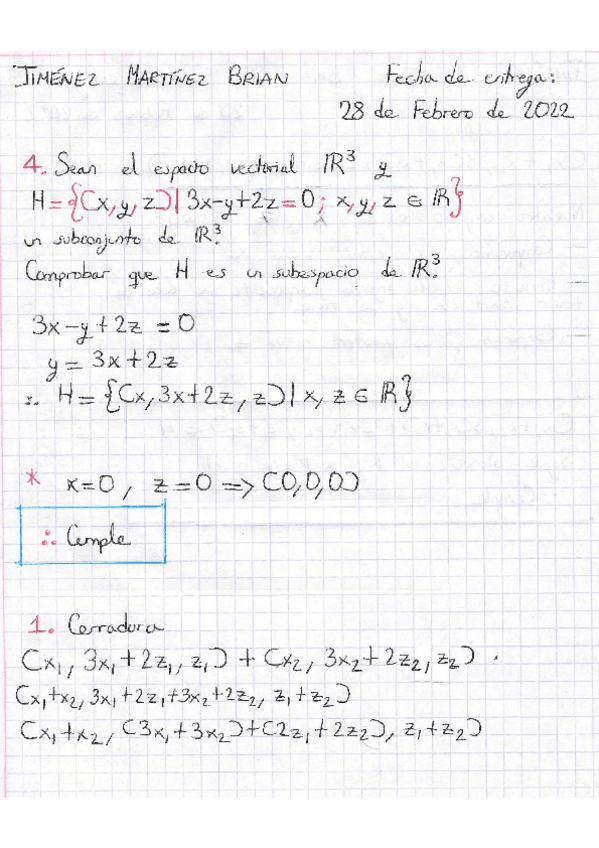 JIMÉNEZ MARTÍNEZ BRIAN Fecha de entrega:
28 de Febrero de 2022
4. Sean el espacio vectorial IR³ y
H={(x,y,z)| 3x-y+2z=0; x,y,z ∈ IR}
un subconjunto de IR³.
Comprobar que H es un subespacio de IR³.
3x-y+2z=0
y=3x+2z
∴ H={(x,3x+2z,z)| x,z ∈ IR}
* x=0, z=0 => (0,0,0)
∴ Cumple
1. Cerradura
(x₁, 3x₁+2z₁, z₁) + (x₂, 3x₂+2z₂, z₂)
(x₁+x₂, 3x₁+2z₁+3x₂+2z₂, z₁+z₂)
(x₁+x₂, (3x₁+3x₂)+(2z₁+2z₂), z₁+z₂)